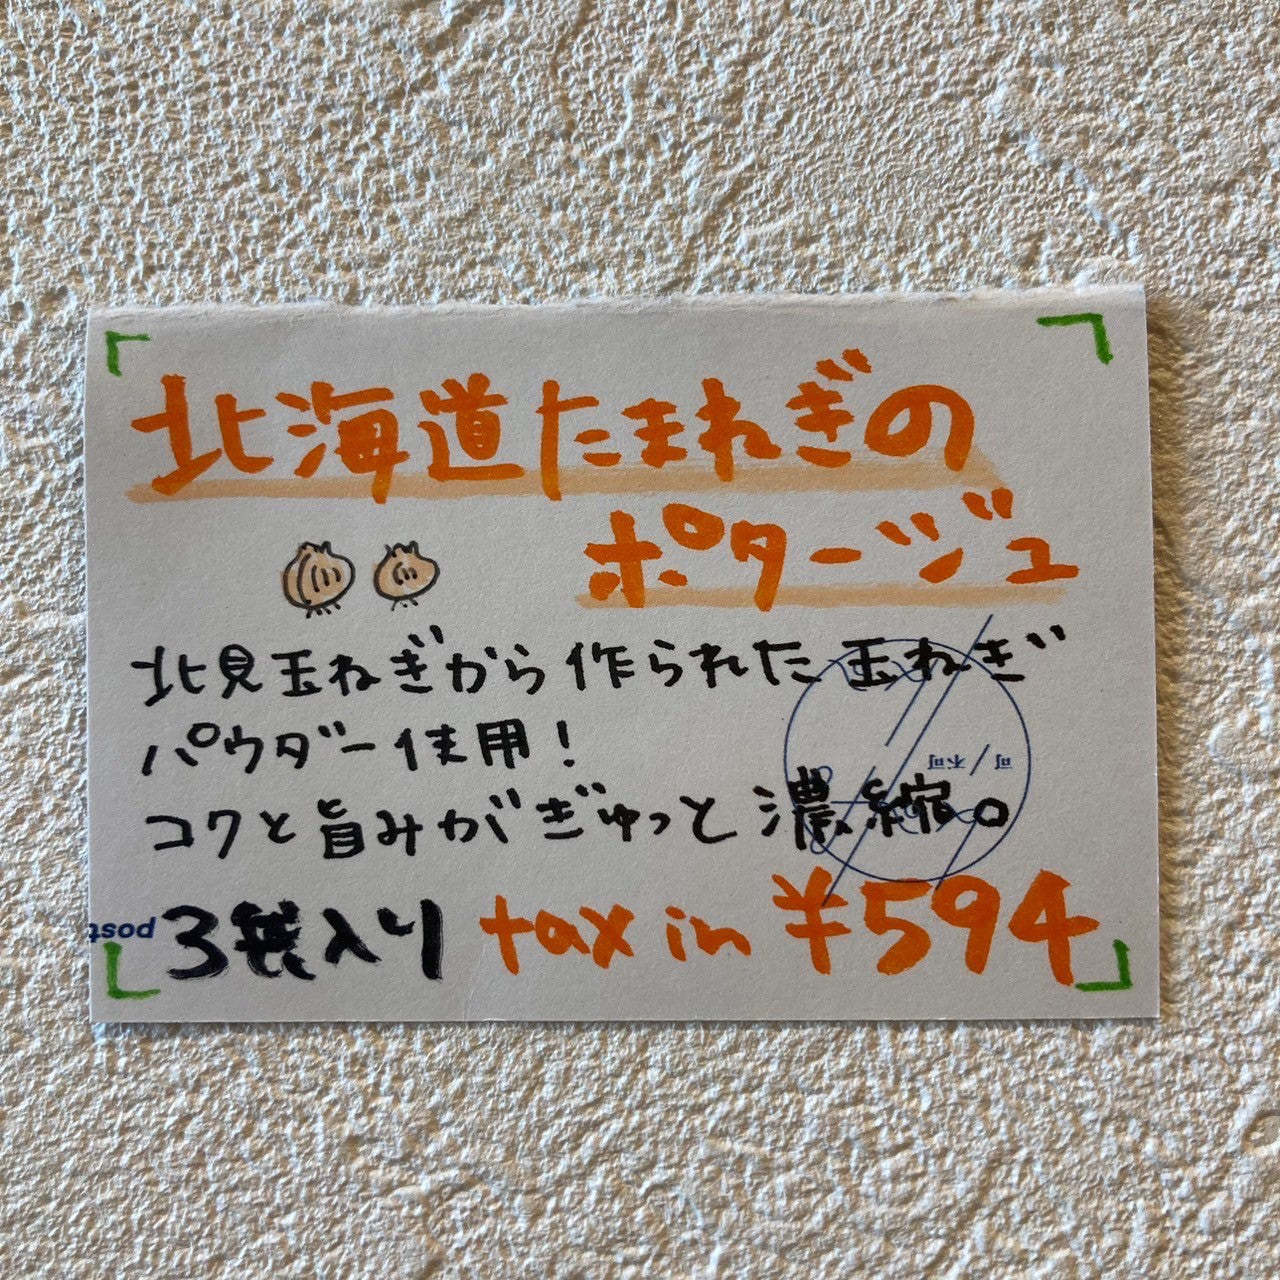 北海道たまねぎの
ポタージュ
北見玉ねぎから作られた玉ねぎ
パウダー使用！
可/不可
コクと旨みがぎゅっと濃縮。
post
3袋入り tax in ¥594